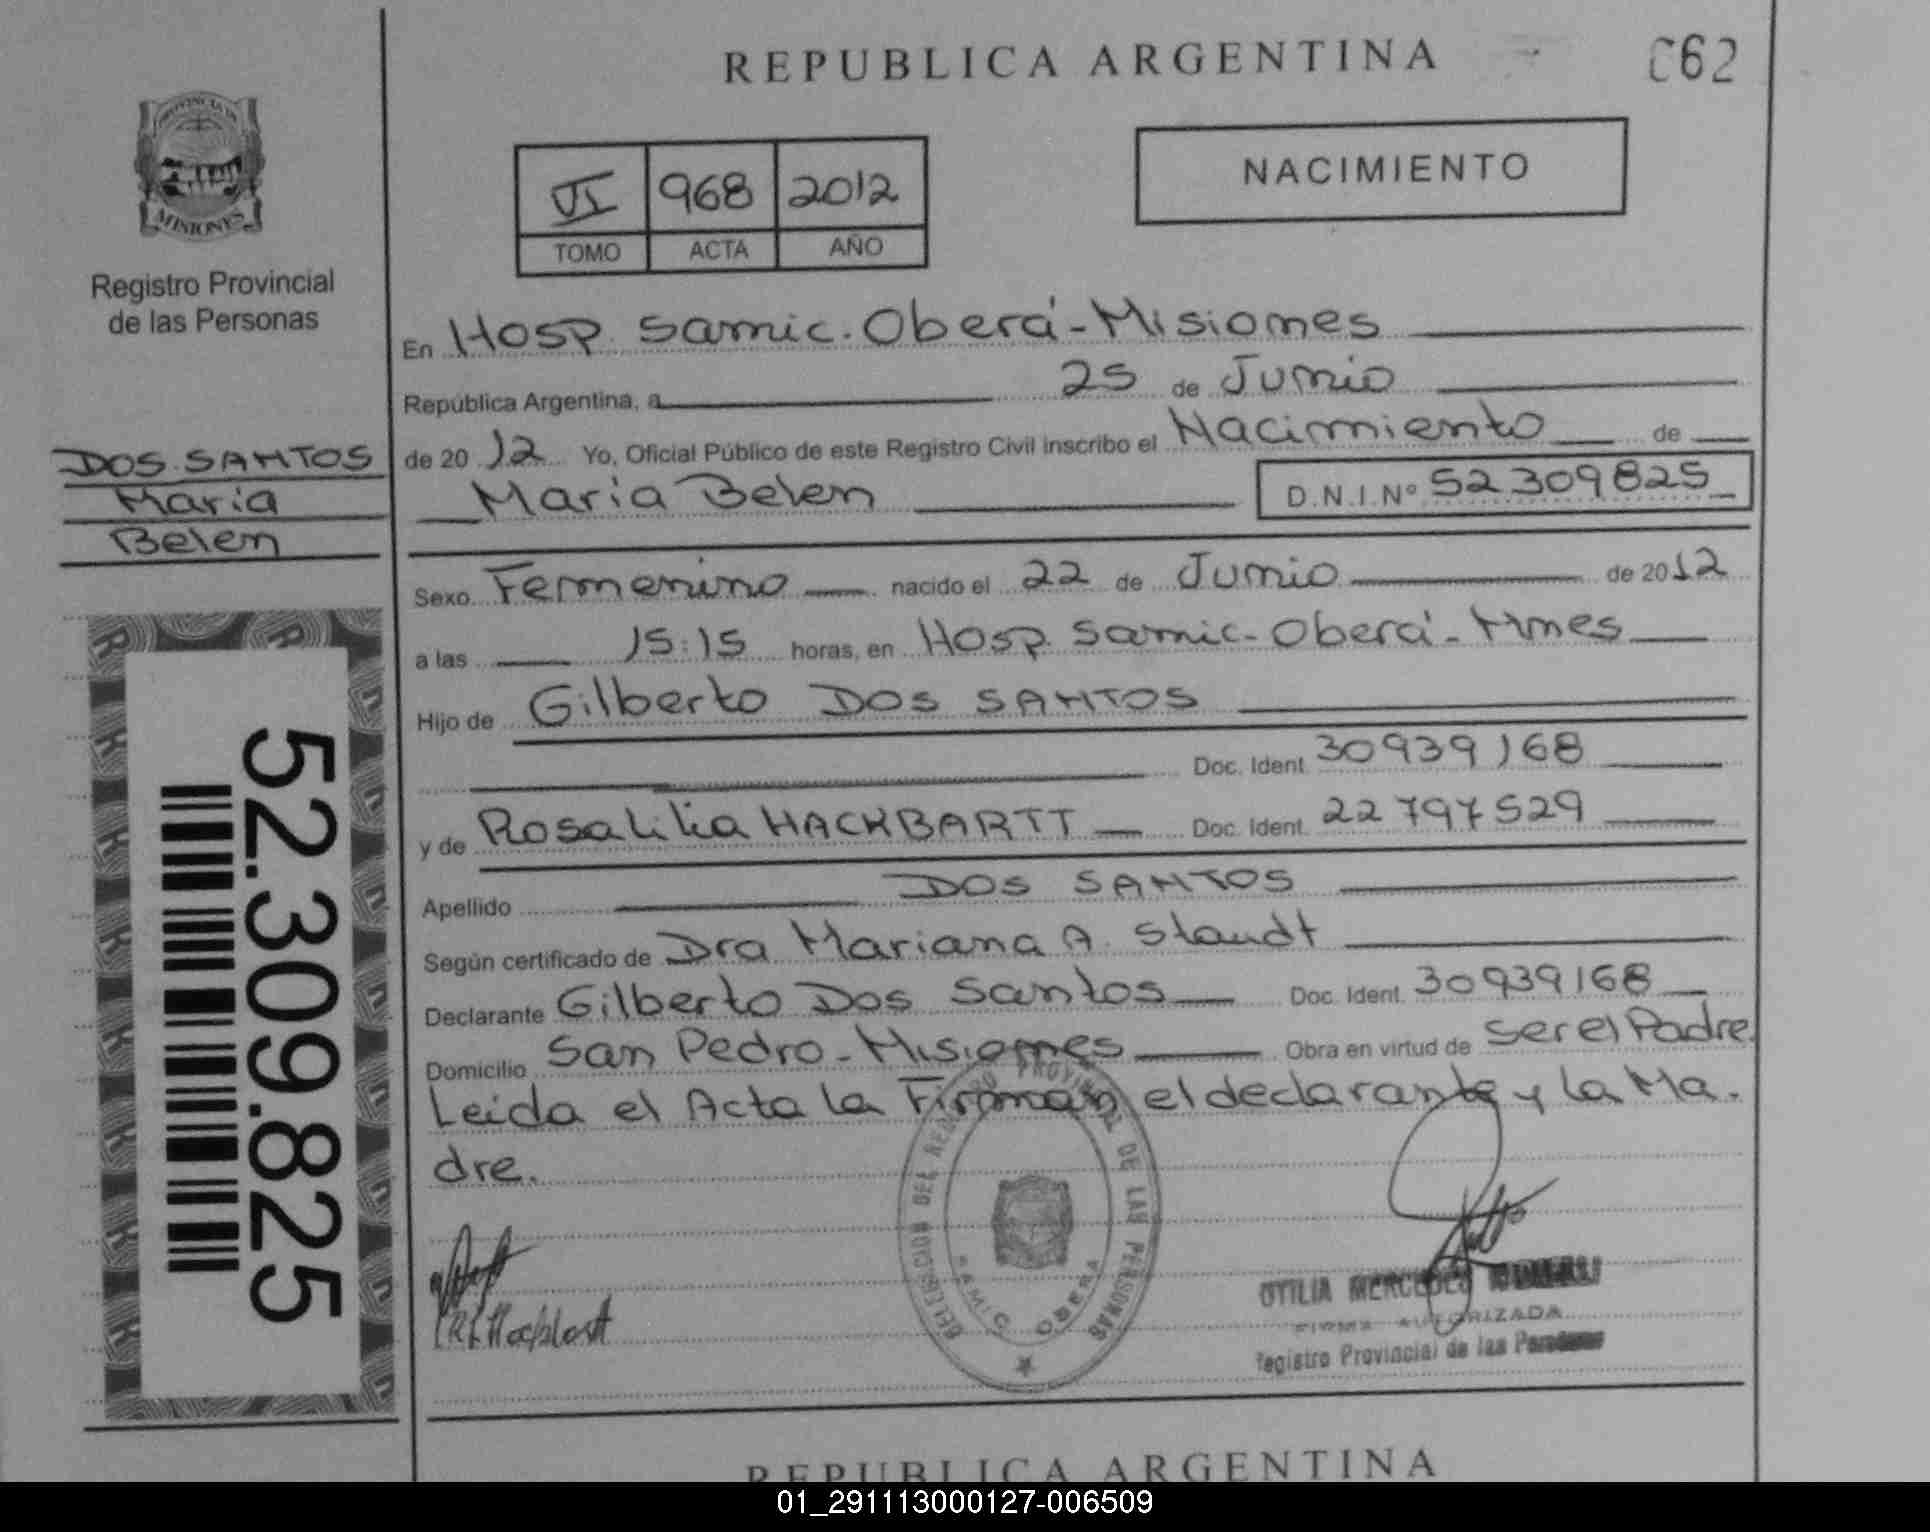 REPUBLICA ARGENTINA
C62
PROVINCIA DE
MISIONES
Registro Provincial
de las Personas
VI 968 2012
TOMO ACTA AÑO
NACIMIENTO
En Hosp. Samic. Oberá - Misiones
República Argentina, a 25 de Junio
de 2012 Yo, Oficial Público de este Registro Civil inscribo el Nacimiento de
Maria Belen D.N.I. Nº 52309825
DOS SANTOS
Maria
Belen
Sexo Femenino nacido el 22 de Junio de 2012
a las 15:15 horas, en Hosp. Samic - Oberá - Mnes
Hijo de Gilberto DOS SANTOS
Doc. Ident. 30939168
y de Rosa Lilia HACKBARTT Doc. Ident. 22797529
Apellido DOS SANTOS
Según certificado de Dra Mariana A. Staudt
Declarante Gilberto Dos Santos Doc. Ident. 30939168
Domicilio San Pedro - Misiones Obra en virtud de ser el Padre.
Leida el Acta la Firman el declarante y la Ma.
dre.
52.309.825
DELEGACION DEL REGISTRO PROVINCIAL DE LAS PERSONAS
SAMIC OBERA
OTILIA MERCEDES
FIRMA AUTORIZADA
Registro Provincial de las Personas
REPUBLICA ARGENTINA
01_291113000127-006509